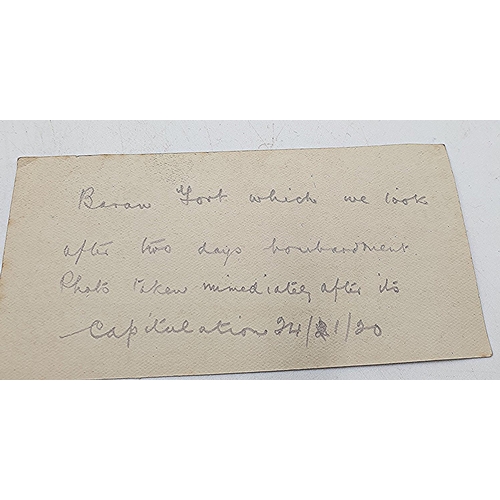 Baran Fort which we took
after two days bombardment
Photo taken immediately after its
Capitulation 24/1/20